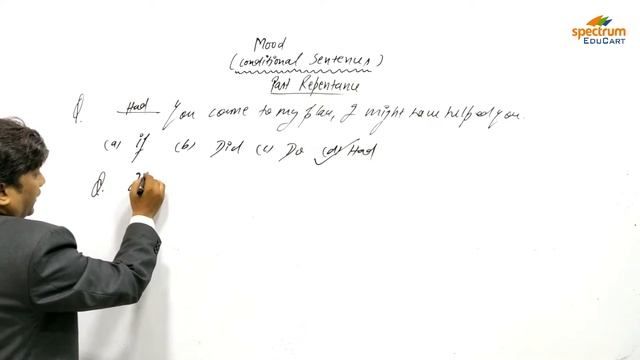 spectrum
EDUCART
Mood
(Conditional Sentences)
Past Repentance
Q. Had you come to my place, I might have helped you.
(a) if (b) Did (c) Do (d) Had
Q.